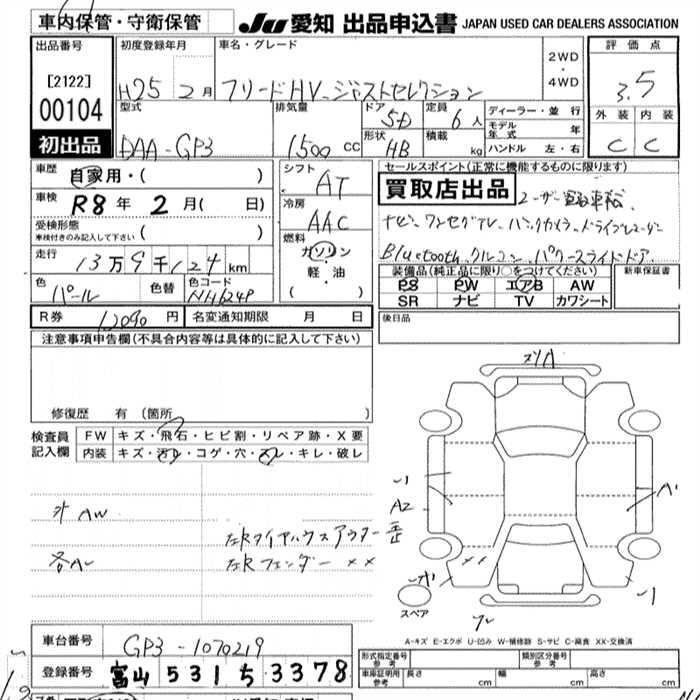 車内保管・守衛保管
JU 愛知 出品申込書 JAPAN USED CAR DEALERS ASSOCIATION
出品番号 初度登録年月 車名・グレード 2WD・4WD 評価点
[2122] H25 2月 フリードHV ジャストセレクション 3.5
00104 型式 排気量 ドア 定員 ディーラー・並行 外装 内装
DAA-GP3 1500 cc 5D 6人 モデル年式 年
初出品 形状 HB 積載 kg ハンドル 左・右 C C
車歴 自家用・( ) シフト AT セールスポイント(正常に機能するものに限ります)
車検 R8年 2月( 日) 冷房 AAC 買取店出品
ナビ・ワンセグTV、バックカメラ、ドライブレコーダー
受検形態 車検付きのみ記入して下さい ( ) 燃料 ガソリン
Bluetooth クルコン、パワースライドドア、
走行 13万9千124km 軽・油 ( )
装備品(純正品に限り○をつけてください) 新車保証書
色 パール 色替 色コード NH624P
PS PW エアB AW
SR ナビ TV カワシート
R券 12090円 名変通知期限 月 日 後日品
注意事項申告欄(不具合内容等は具体的に記入して下さい)
修復歴 有(箇所 )
検査員記入欄 FW キズ・飛石・ヒビ割・リペア跡・X要
内装 キズ・汚レ・コゲ・穴・スレ・キレ・破レ
A2 A1
AW
左Rタイヤハウスアウター歪
左Rフェンダー ××
スペア
A-キズ E-エクボ U-凹み W-補修跡 S-サビ C-腐食 XX-交換済
車台番号 GP3-1070219
形式指定番号 参考 類別区分番号 参考
登録番号 富山 531 ち 3378
車庫証明用 参考 長さ cm 幅 cm 高さ cm